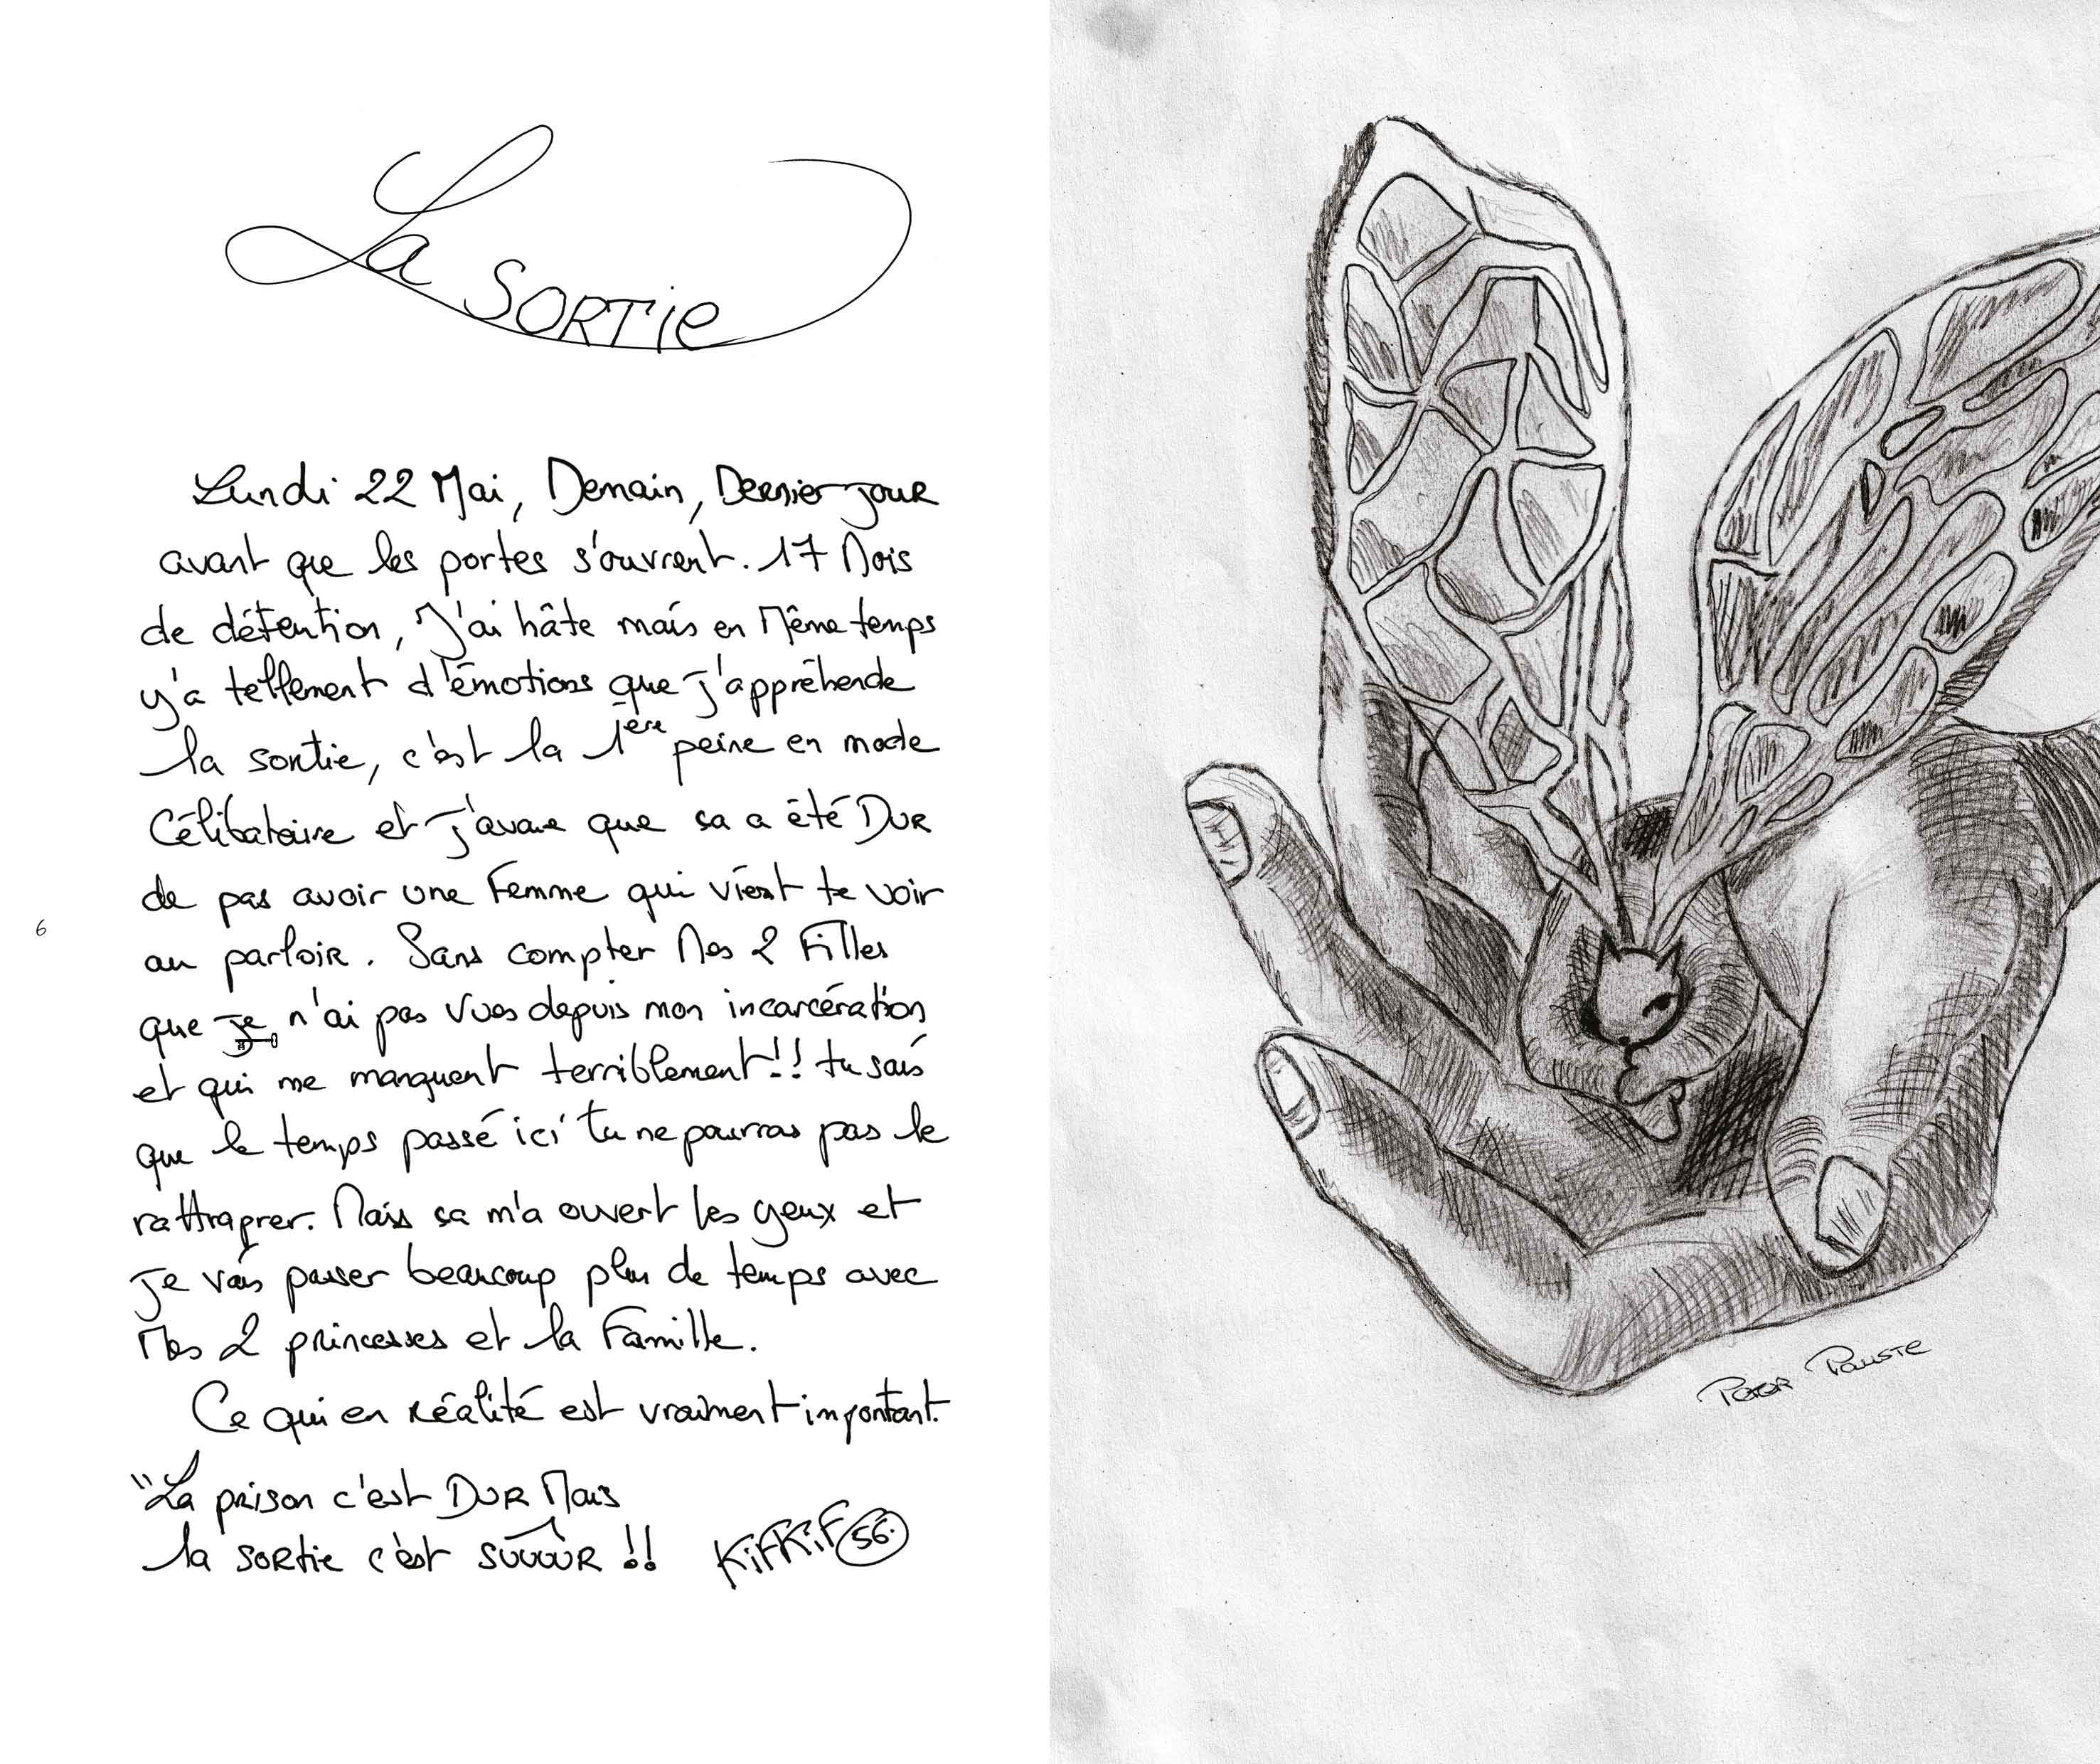 La SORTie
Lundi 22 Mai, Demain, Dernier jour
avant que les portes s'ouvrent. 17 Mois
de détention, J'ai hâte mais en Même temps
y'a tellement d'émotions que j'appréhende
la sortie, c'est la 1ère peine en mode
Célibataire et j'avoue que sa a été DUR
de pas avoir une Femme qui vient te voir
au parloir. Sans compter Mes 2 Filles
que je n'ai pas vues depuis mon incarcération
et qui me manquent terriblement!! tu sais
que le temps passé ici tu ne pourras pas le
rattraprer. Mais sa m'a ouvert les yeux et
Je vais passer beaucoup plus de temps avec
Mes 2 princesses et la Famille.
Ce qui en réalité est vraiment important.
"La prison c'est DUR Mais
la sortie c'est SÛÛÛÛR !!
KiFKiF 56.
6